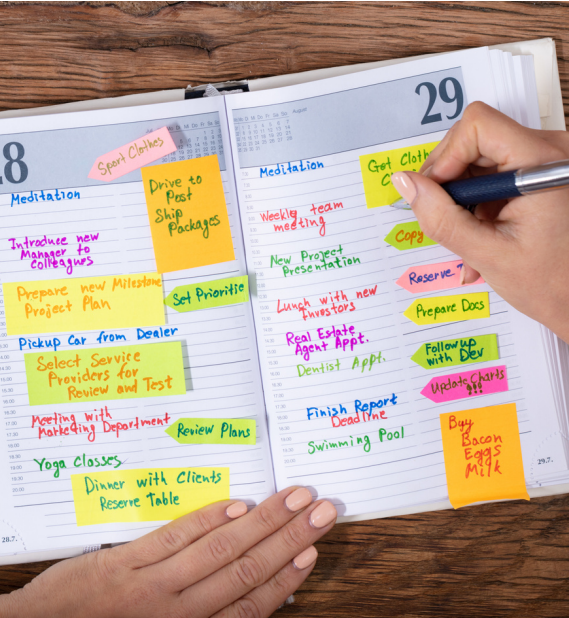 8
Sport Clothes
Meditation
Drive to
Post
Ship
Packages
Introduce new
Manager to
Colleagues
Prepare new Milestone
Project Plan
Set Prioritie
Pickup Car from Dealer
Select Service
Providers for
Review and Test
Meeting with
Marketing Department
Review Plans
Yoga Classes
Dinner with Clients
Reserve Table
28.7.
August
29
Meditation
Get Cloth
Weekly team
meeting
Copy
New Project
Presentation
Reserve
Lunch with new
Investors
Prepare Docs
Real Estate
Agent Appt.
Followup
with Dev
Dentist Appt.
Update Charts
!!!
Finish Report
Deadline
Buy
Bacon
Eggs
Milk
Swimming Pool
29.7.